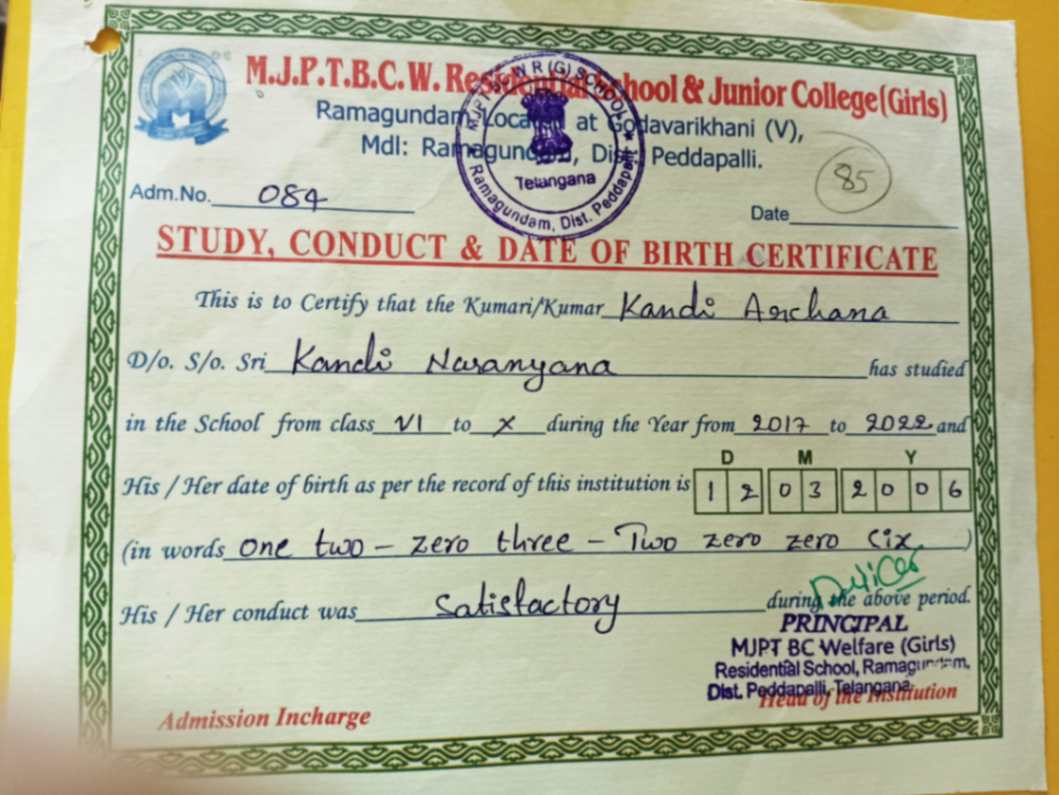 M.J.P.T.B.C.W. Residential School & Junior College (Girls)
Ramagundam, Located at Godavarikhani (V),
Mdl: Ramagundam, Dist. Peddapalli.
R (G) SCHOOL
Telangana
Ramagundam, Dist. Peddapalli
85
Adm.No. 084
Date
STUDY, CONDUCT & DATE OF BIRTH CERTIFICATE
This is to Certify that the Kumari/Kumar Kandi Archana
D/o. S/o. Sri Kandi Naranyana has studied
in the School from class VI to X during the Year from 2017 to 2022 and
D M Y
His / Her date of birth as per the record of this institution is 12 03 2006
(in words one two - zero three - Two zero zero Six )
His / Her conduct was Satisfactory during the above period.
PRINCIPAL
MJPT BC Welfare (Girls)
Residential School, Ramagundam,
Dist. Peddapalli, Telangana.
Admission Incharge Head of the Institution